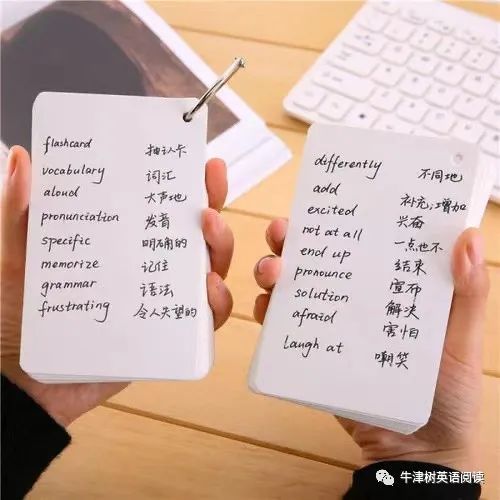 flashcard 抽认卡
vocabulary 词汇
aloud 大声地
pronunciation 发音
specific 明确的
memorize 记住
grammar 语法
frustrating 令人失望的
differently 不同地
add 补充;增加
excited 兴奋
not at all 一点也不
end up 结束
pronounce 宣布
solution 解决
afraid 害怕
laugh at 嘲笑
牛津树英语阅读